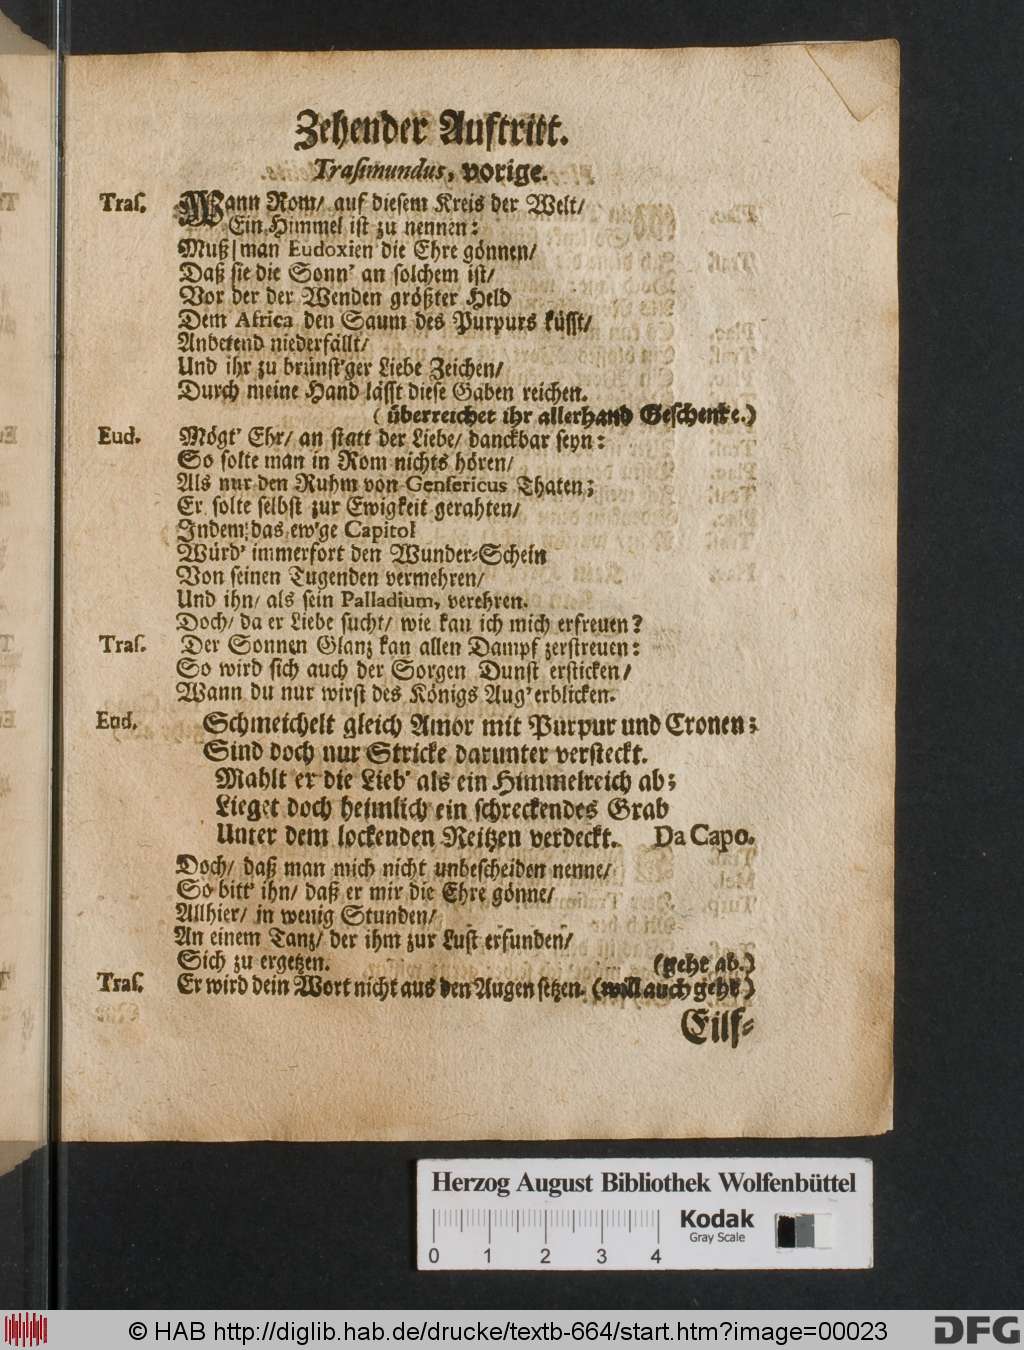 Zehender Auftritt.
Trasimundus, vorige.
Tras. Wann Rom/ auf diesem Kreis der Welt/
Ein Himmel ist zu nennen:
Muß man Eudoxien die Ehre gönnen/
Daß sie die Sonn' an solchem ist/
Vor der der Wenden größter Held
Dem Africa den Saum des Purpurs küsst/
Anbetend niederfällt/
Und ihr zu brünst'ger Liebe Zeichen/
Durch meine Hand lässt diese Gaben reichen.
(überreichet ihr allerhand Geschenke.)
Eud. Mögt' Ehr/ an statt der Liebe/ danckbar seyn:
So solte man in Rom nichts hören/
Als nur den Ruhm von Gensericus Thaten;
Er solte selbst zur Ewigkeit gerahten/
Indem das ew'ge Capitol
Würd' immerfort den Wunder-Schein
Von seinen Tugenden vermehren/
Und ihn/ als sein Palladium, verehren.
Doch/ da er Liebe sucht/ wie kan ich mich erfreuen?
Tras. Der Sonnen Glanz kan allen Dampf zerstreuen:
So wird sich auch der Sorgen Dunst ersticken/
Wann du nur wirst des Königs Aug' erblicken.
Eud. Schmeichelt gleich Amor mit Purpur und Cronen;
Sind doch nur Stricke darunter versteckt.
Mahlt er die Lieb' als ein Himmelreich ab;
Lieget doch heimlich ein schreckendes Grab
Unter dem lockenden Reitzen verdeckt. Da Capo.
Doch/ daß man mich nicht unbescheiden nenne/
So bitt' ihn/ daß er mir die Ehre gönne/
Allhier/ in wenig Stunden/
An einem Tanz/ der ihm zur Lust erfunden/
Sich zu ergetzen. (gehe ab.)
Tras. Er wird dein Wort nicht aus den Augen setzen. (will auch gehē)
Eilf-
Herzog August Bibliothek Wolfenbüttel
Kodak
Gray Scale
0 1 2 3 4
© HAB http://diglib.hab.de/drucke/textb-664/start.htm?image=00023
DFG